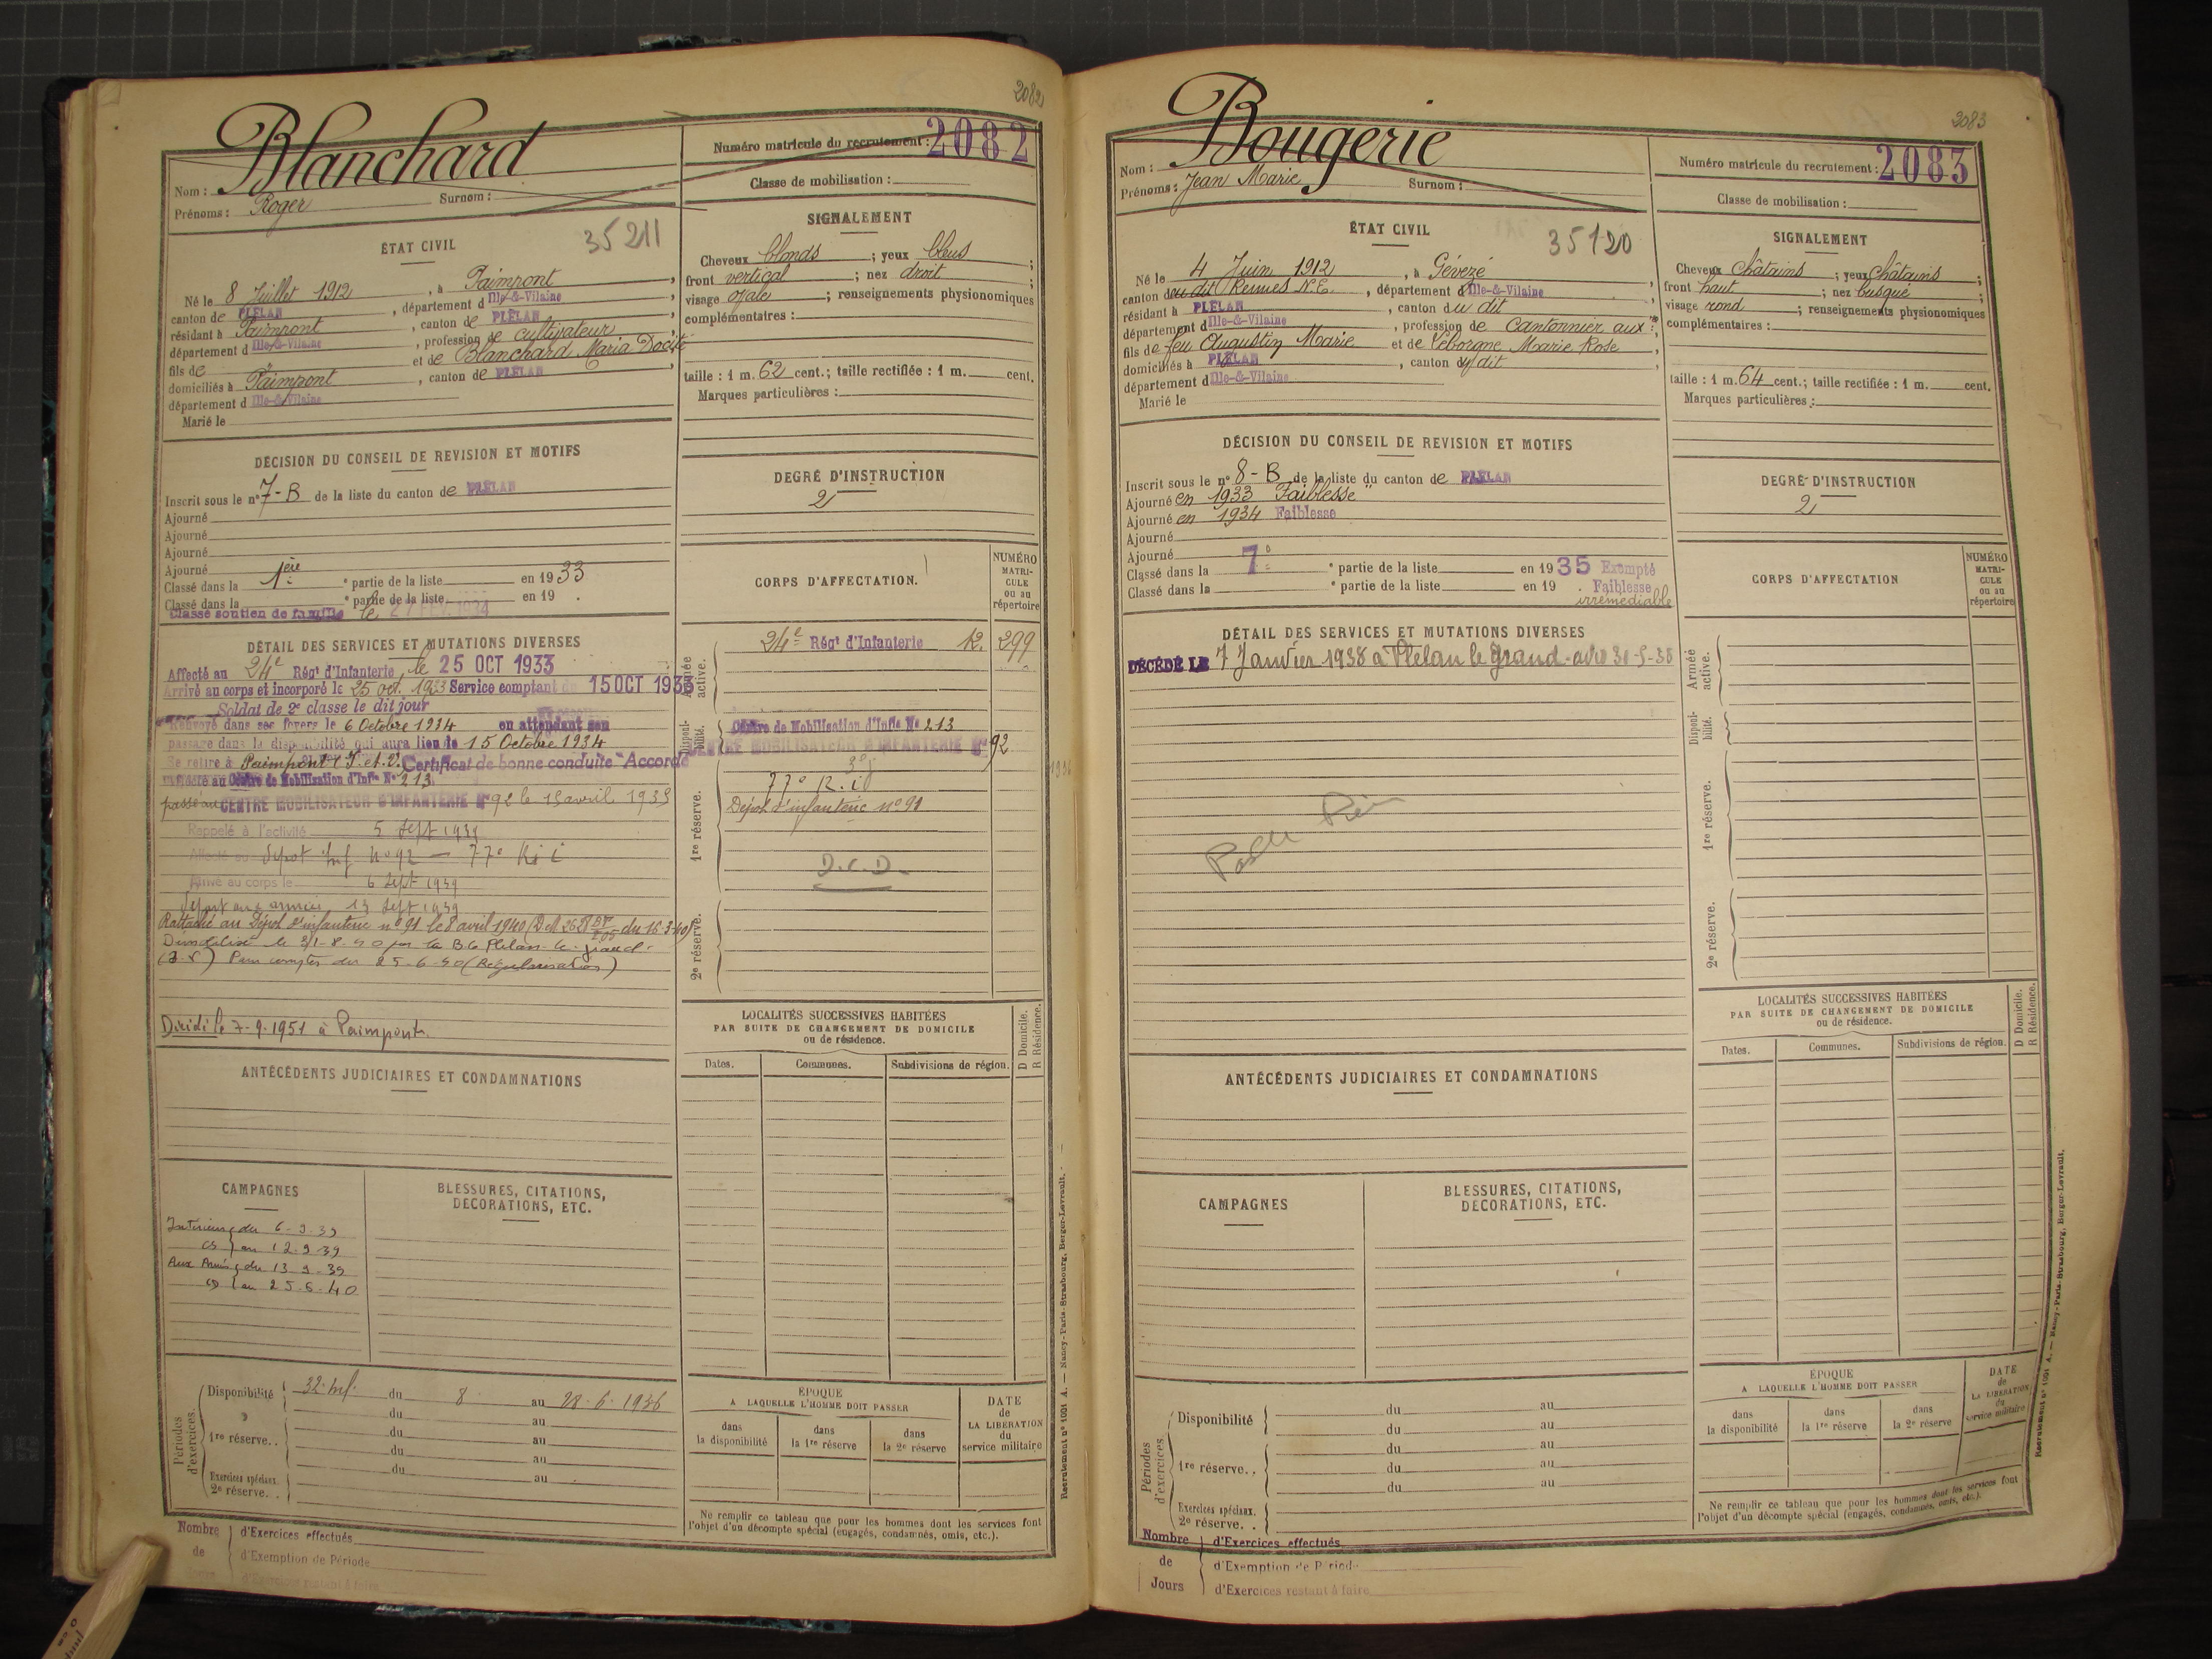 2082
Blanchard
Nom :
Prénoms : Roger Surnom :
Numéro matricule du recrutement : 2082
Classe de mobilisation :
ÉTAT CIVIL
35211
Né le 8 Juillet 1912, à Paimpont,
canton de PLÉLAN, département d Ille-&-Vilaine,
résidant à Paimpont, canton de PLÉLAN,
département d Ille-&-Vilaine, profession de cultivateur,
fils de et de Blanchard Maria Docité,
domiciliés à Paimpont, canton de PLÉLAN,
département d Ille-&-Vilaine
Marié le
SIGNALEMENT
Cheveux blonds ; yeux bleus ;
front vertical ; nez droit ;
visage ovale ; renseignements physionomiques
complémentaires :
taille : 1 m. 62 cent.; taille rectifiée : 1 m. cent.
Marques particulières :
DÉCISION DU CONSEIL DE REVISION ET MOTIFS
Inscrit sous le n° 7-B de la liste du canton de PLÉLAN
Ajourné
Ajourné
Ajourné
Ajourné
Classé dans la 1ère partie de la liste en 1933
Classé dans la partie de la liste en 19 .
Classé soutien de famille le 27 FEV. 1934
DEGRÉ D'INSTRUCTION
2
DÉTAIL DES SERVICES ET MUTATIONS DIVERSES
Affecté au 24e Régt d'Infanterie, le 25 OCT 1933
Arrivé au corps et incorporé le 25 oct. 1933 Service comptant du 15 OCT 1933
Soldat de 2e classe le dit jour
Renvoyé dans ses foyers le 6 Octobre 1934 en attendant son
passage dans la disponibilité qui aura lieu le 15 Octobre 1934
Se retire à Paimpont I. et V. Certificat de bonne conduite "Accordé
Affecté au Centre de Mobilisation d'Infie No 213
passé au CENTRE MOBILISATEUR D'INFANTERIE N° 92 le 15 avril 1935
Rappelé à l'activité 5 Sept 1939
Affecté au Dépot Inf n° 92 — 77e R.i
Arrivé au corps le 6 Sept 1939
Départ aux armées 13 Sept 1939
Rattaché au Dépot d'infanterie n° 91 le 8 avril 1940 (D.M du 16-3-40)
Démobilisé le 31-8-40 par la B.G Plélan-le-grand
Pour compter du 25-6-40 (Régularisation)
Décédé le 7-9-1951 à Paimpont.
CORPS D'AFFECTATION.
NUMÉRO MATRICULE ou au répertoire
Armée active.
24e Régt d'Infanterie 12. 299
Disponibilité.
Centre de Mobilisation d'Infie No 213
CENTRE MOBILISATEUR D'INFANTERIE N° 92
77e R.i
1re réserve.
Dépot d'infanterie n° 91
D.C.D.
2e réserve.
ANTÉCÉDENTS JUDICIAIRES ET CONDAMNATIONS
LOCALITÉS SUCCESSIVES HABITÉES
PAR SUITE DE CHANGEMENT DE DOMICILE
ou de résidence.
Dates. Communes. Subdivisions de région. D Domicile. R Résidence.
CAMPAGNES
Intérieur du 6-9-39
CS au 12-9-39
Aux Armées du 13-9-39
au 25-6-40
BLESSURES, CITATIONS,
DÉCORATIONS, ETC.
Périodes d'exercices.
Disponibilité 32e Inf. du 8 au 28-6-1936
du au
1re réserve. . du au
du au
du au
Exercices spéciaux.
2e réserve. .
ÉPOQUE
A LAQUELLE L'HOMME DOIT PASSER
dans la disponibilité
dans la 1re réserve
dans la 2e réserve
DATE de LA LIBÉRATION du service militaire
Ne remplir ce tableau que pour les hommes dont les services font
l'objet d'un décompte spécial (engagés, condamnés, omis, etc.).
Nombre de Jours
d'Exercices effectués
d'Exemption de Période
d'Exercices restant à faire
Recrutement n° 1001 A. — Nancy-Paris-Strasbourg, Berger-Levrault.
2083
Bougerie
Nom :
Prénoms : Jean Marie Surnom :
Numéro matricule du recrutement : 2083
Classe de mobilisation :
ÉTAT CIVIL
35120
Né le 4 Juin 1912, à Gévezé
canton du dit Rennes N.E., département d Ille-&-Vilaine,
résidant à PLÉLAN, canton du dit
département d Ille-&-Vilaine, profession de Cantonnier aux
fils de feu Augustin Marie et de Leborgne Marie Rose,
domiciliés à PLÉLAN, canton du dit
département d Ille-&-Vilaine
Marié le
SIGNALEMENT
Cheveux châtains ; yeux châtains ;
front haut ; nez busqué ;
visage rond ; renseignements physionomiques
complémentaires :
taille : 1 m. 64 cent.; taille rectifiée : 1 m. cent.
Marques particulières :
DÉCISION DU CONSEIL DE REVISION ET MOTIFS
Inscrit sous le n° 8-B de la liste du canton de PLÉLAN
Ajourné en 1933 "Faiblesse"
Ajourné en 1934 Faiblesse
Ajourné
Ajourné
Classé dans la 7e partie de la liste en 1935 Exempté
Classé dans la partie de la liste en 19 . Faiblesse
irrémédiable
DEGRÉ D'INSTRUCTION
2
DÉTAIL DES SERVICES ET MUTATIONS DIVERSES
DÉCÉDÉ LE 7 Janvier 1938 à Plélan le Grand - avis 30-5-38
CORPS D'AFFECTATION
NUMÉRO MATRICULE ou au répertoire
Armée active.
Disponibilité.
1re réserve.
2e réserve.
ANTÉCÉDENTS JUDICIAIRES ET CONDAMNATIONS
LOCALITÉS SUCCESSIVES HABITÉES
PAR SUITE DE CHANGEMENT DE DOMICILE
ou de résidence.
Dates. Communes. Subdivisions de région. D Domicile. R Résidence.
CAMPAGNES
BLESSURES, CITATIONS,
DÉCORATIONS, ETC.
Périodes d'exercices
Disponibilité du au
du au
1re réserve. . du au
du au
du au
Exercices spéciaux.
2e réserve. .
ÉPOQUE
A LAQUELLE L'HOMME DOIT PASSER
dans la disponibilité
dans la 1re réserve
dans la 2e réserve
DATE de LA LIBÉRATION du service militaire
Ne remplir ce tableau que pour les hommes dont les services font
l'objet d'un décompte spécial (engagés, condamnés, omis, etc.).
Nombre de Jours
d'Exercices effectués
d'Exemption de Période
d'Exercices restant à faire
Recrutement n° 1001 A. — Nancy-Paris-Strasbourg, Berger-Levrault.